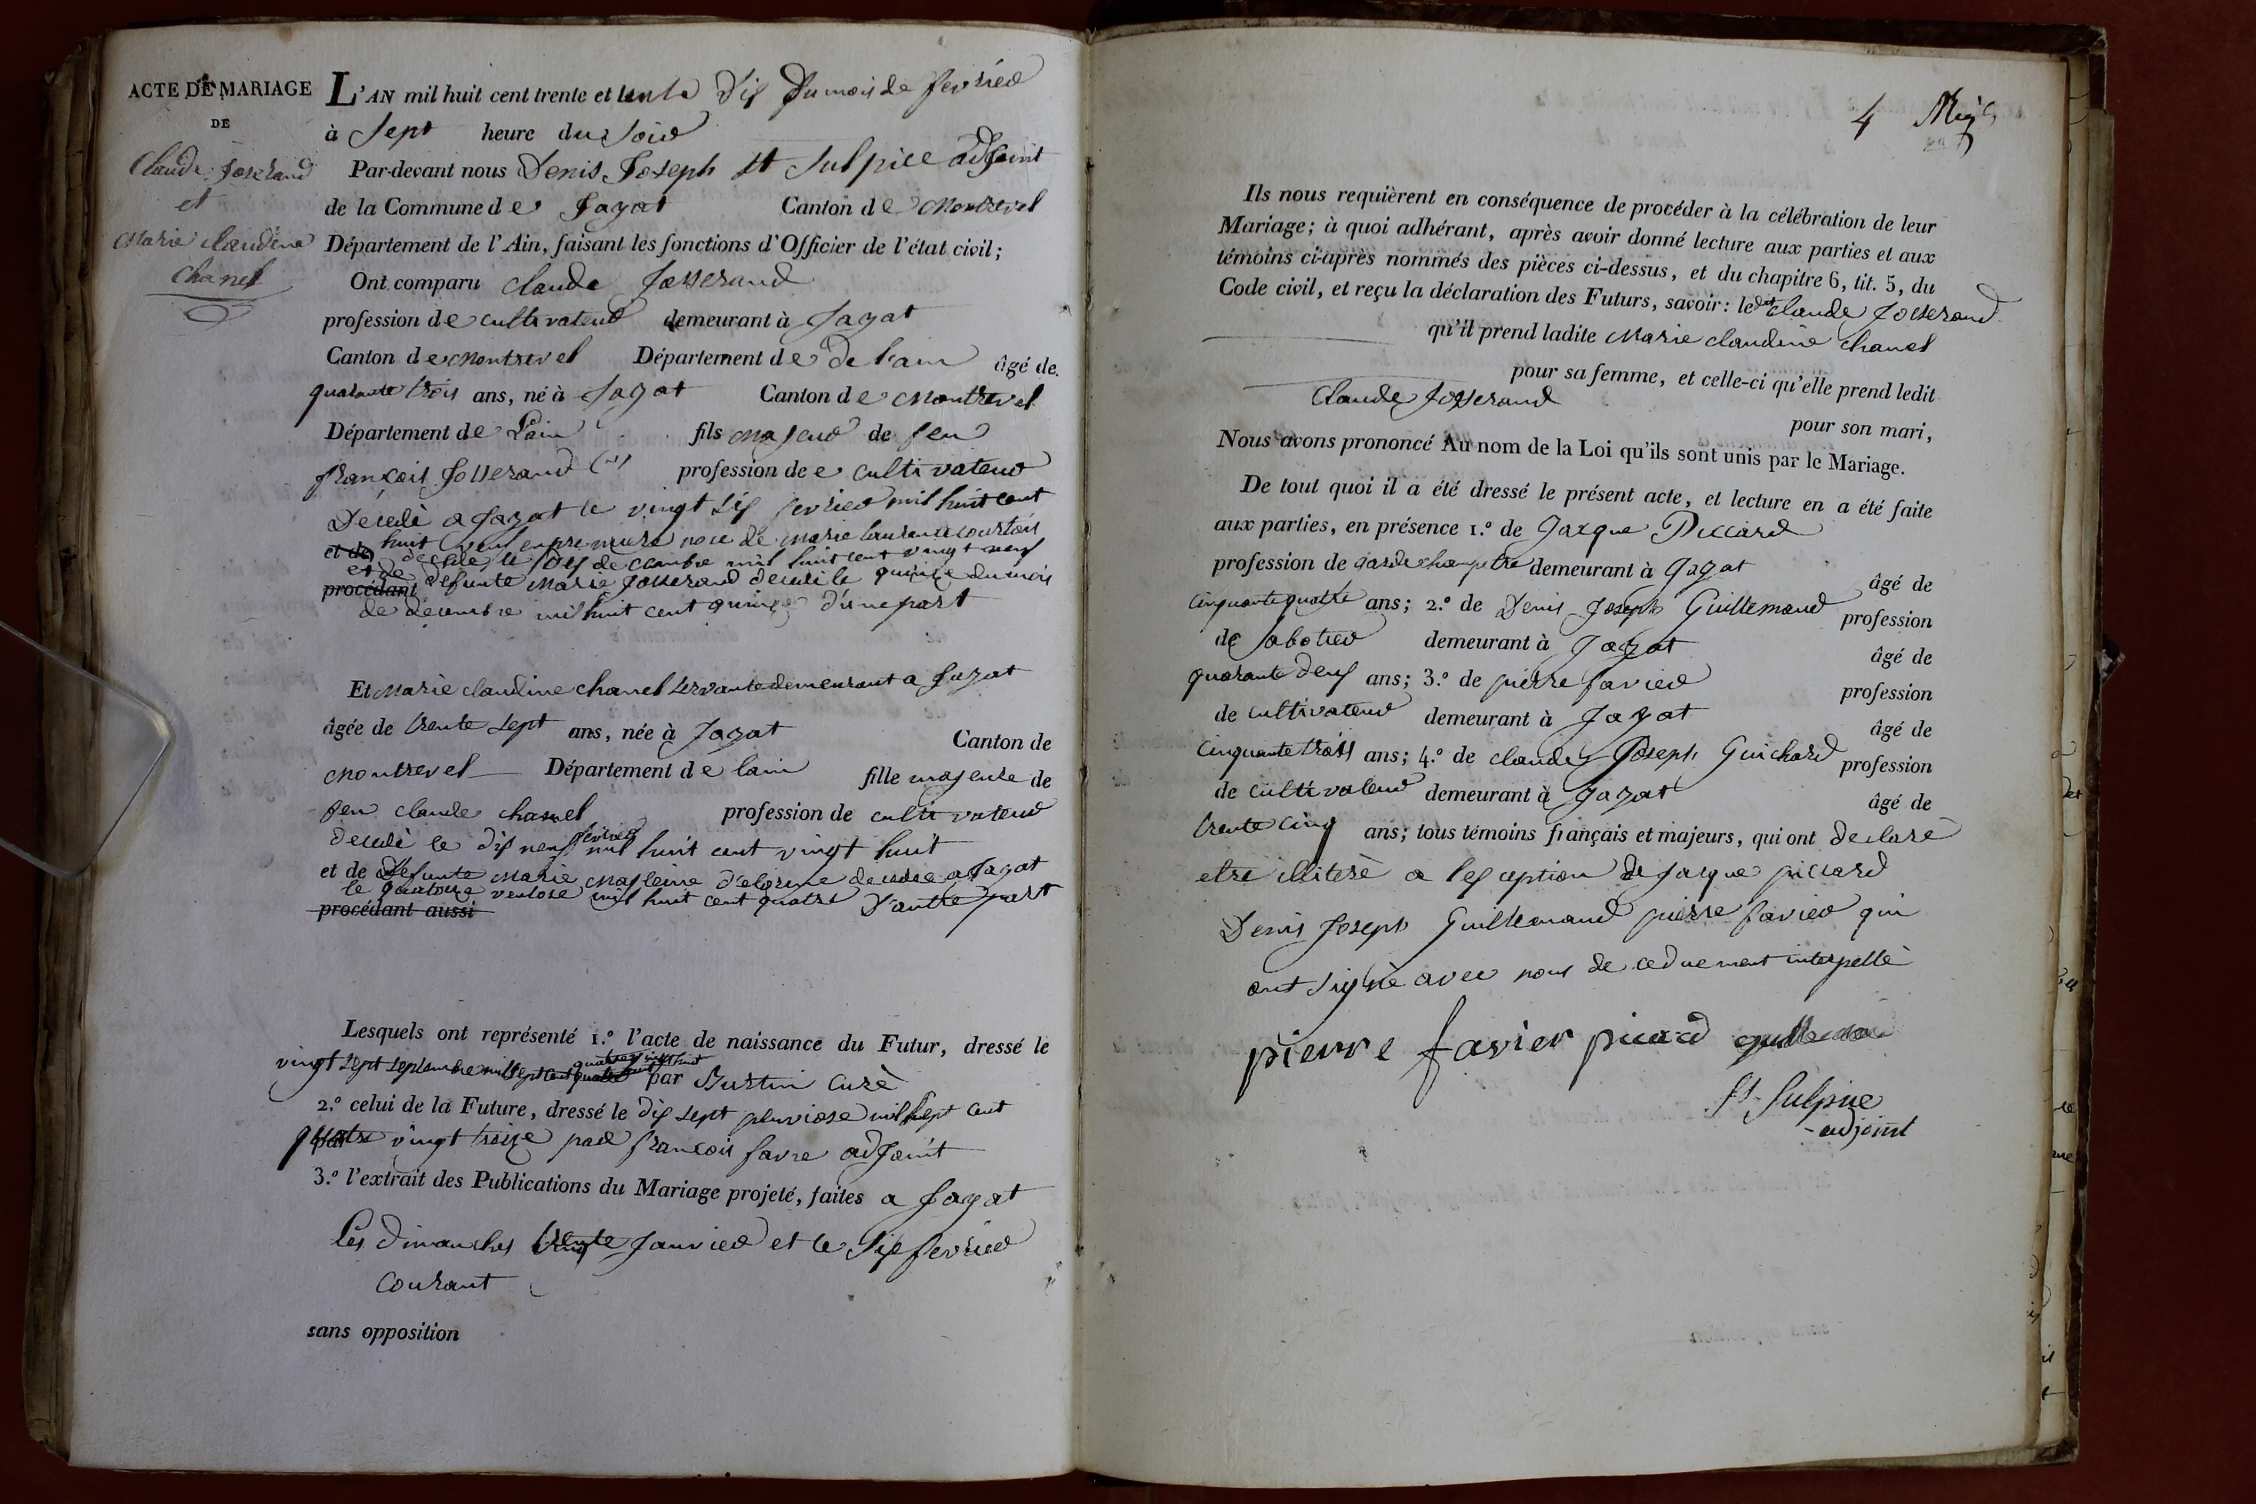 ACTE DE MARIAGE
DE
Claude Josserand
et
Marie claudine
Chanel
L'AN mil huit cent trente et le dix du mois de fevrier
à Sept heure du Soir
Par-devant nous Denis Joseph St Sulpice adjoint
de la Commune de Jayat Canton de Montrevel
Département de l'Ain, faisant les fonctions d'Officier de l'état civil;
Ont comparu Claude Josserand
profession de cultivateur demeurant à Jayat
Canton de Montrevel Département de de l'ain âgé de
quarante trois ans, né à Jayat Canton de Montrevel
Département de Lain fils majeur de feu
françois Josserand profession de e cultivateur
Decedè a Jayat le vingt six fevrier mil huit cent
huit veuf en premiere noce de Marie laurence courtois
et de decedee le dix de cembre mil huit cent vingt neuf
et de defunte Marie Josserand decedè le quinze du mois
procédant
de decembre mil huit cent quinze d'une part
Et Marie claudine chanel servante demeurant a Jayat
âgée de trente sept ans, née à Jayat Canton de
Montrevel Département de lain fille majeure de
feu claude chanel profession de cultivateur
decedè le dix neuf fevrier mil huit cent vingt huit
et de Defunte Marie Majleine delorme decedee a Jayat
le quatorze ventose mil huit cent quatre D'autre part
procédant aussi
Lesquels ont représenté 1.º l'acte de naissance du Futur, dressé le
vingt sept septembre mil sept cent quatre vingt huit par Burtin curè
2.º celui de la Future, dressé le dix sept pluviose mil sept cent
quatre vingt treize par francois favre adjoint
3.º l'extrait des Publications du Mariage projeté, faites a Jayat
Les dimanches trente Janvier et le Six fevrier
courant
sans opposition
4
Ils nous requièrent en conséquence de procéder à la célébration de leur
Mariage; à quoi adhérant, après avoir donné lecture aux parties et aux
témoins ci-après nommés des pièces ci-dessus, et du chapitre 6, tit. 5, du
Code civil, et reçu la déclaration des Futurs, savoir: ledit Claude Josserand
qu'il prend ladite Marie claudine chanel
pour sa femme, et celle-ci qu'elle prend ledit
Claude Josserand
pour son mari,
Nous avons prononcé Au nom de la Loi qu'ils sont unis par le Mariage.
De tout quoi il a été dressé le présent acte, et lecture en a été faite
aux parties, en présence 1.º de Jacque Piccard
profession de garde champetre demeurant à Jayat âgé de
cinquante quatre ans; 2.º de Denis Joseph Guillemaud profession
de Sabotier demeurant à Jayat âgé de
quarante deux ans; 3.º de pierre favier profession
de cultivateur demeurant à Jayat âgé de
Cinquante trois ans; 4.º de claude Joseph Guichard profession
de cultivateur demeurant à Jayat âgé de
trente cinq ans; tous témoins français et majeurs, qui ont declarè
etre illiterè a lexception de Jacque piccard
Denis Joseph Guillemaud pierre favier qui
ont signè avec nous de ce duement interpellè
pierre favier picard guillemau
St Sulpice
adjoint